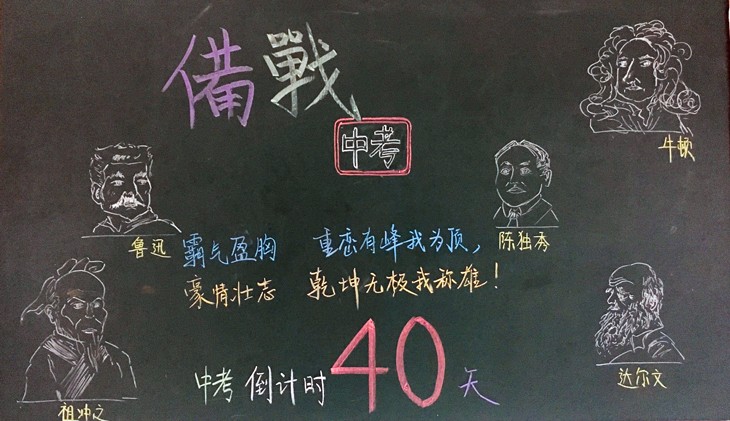 備戰
中考
牛顿
鲁迅
陈独秀
霸气盈胸 重峦有峰我为顶，
豪情壮志 乾坤无极我称雄！
祖冲之
达尔文
中考倒计时40天